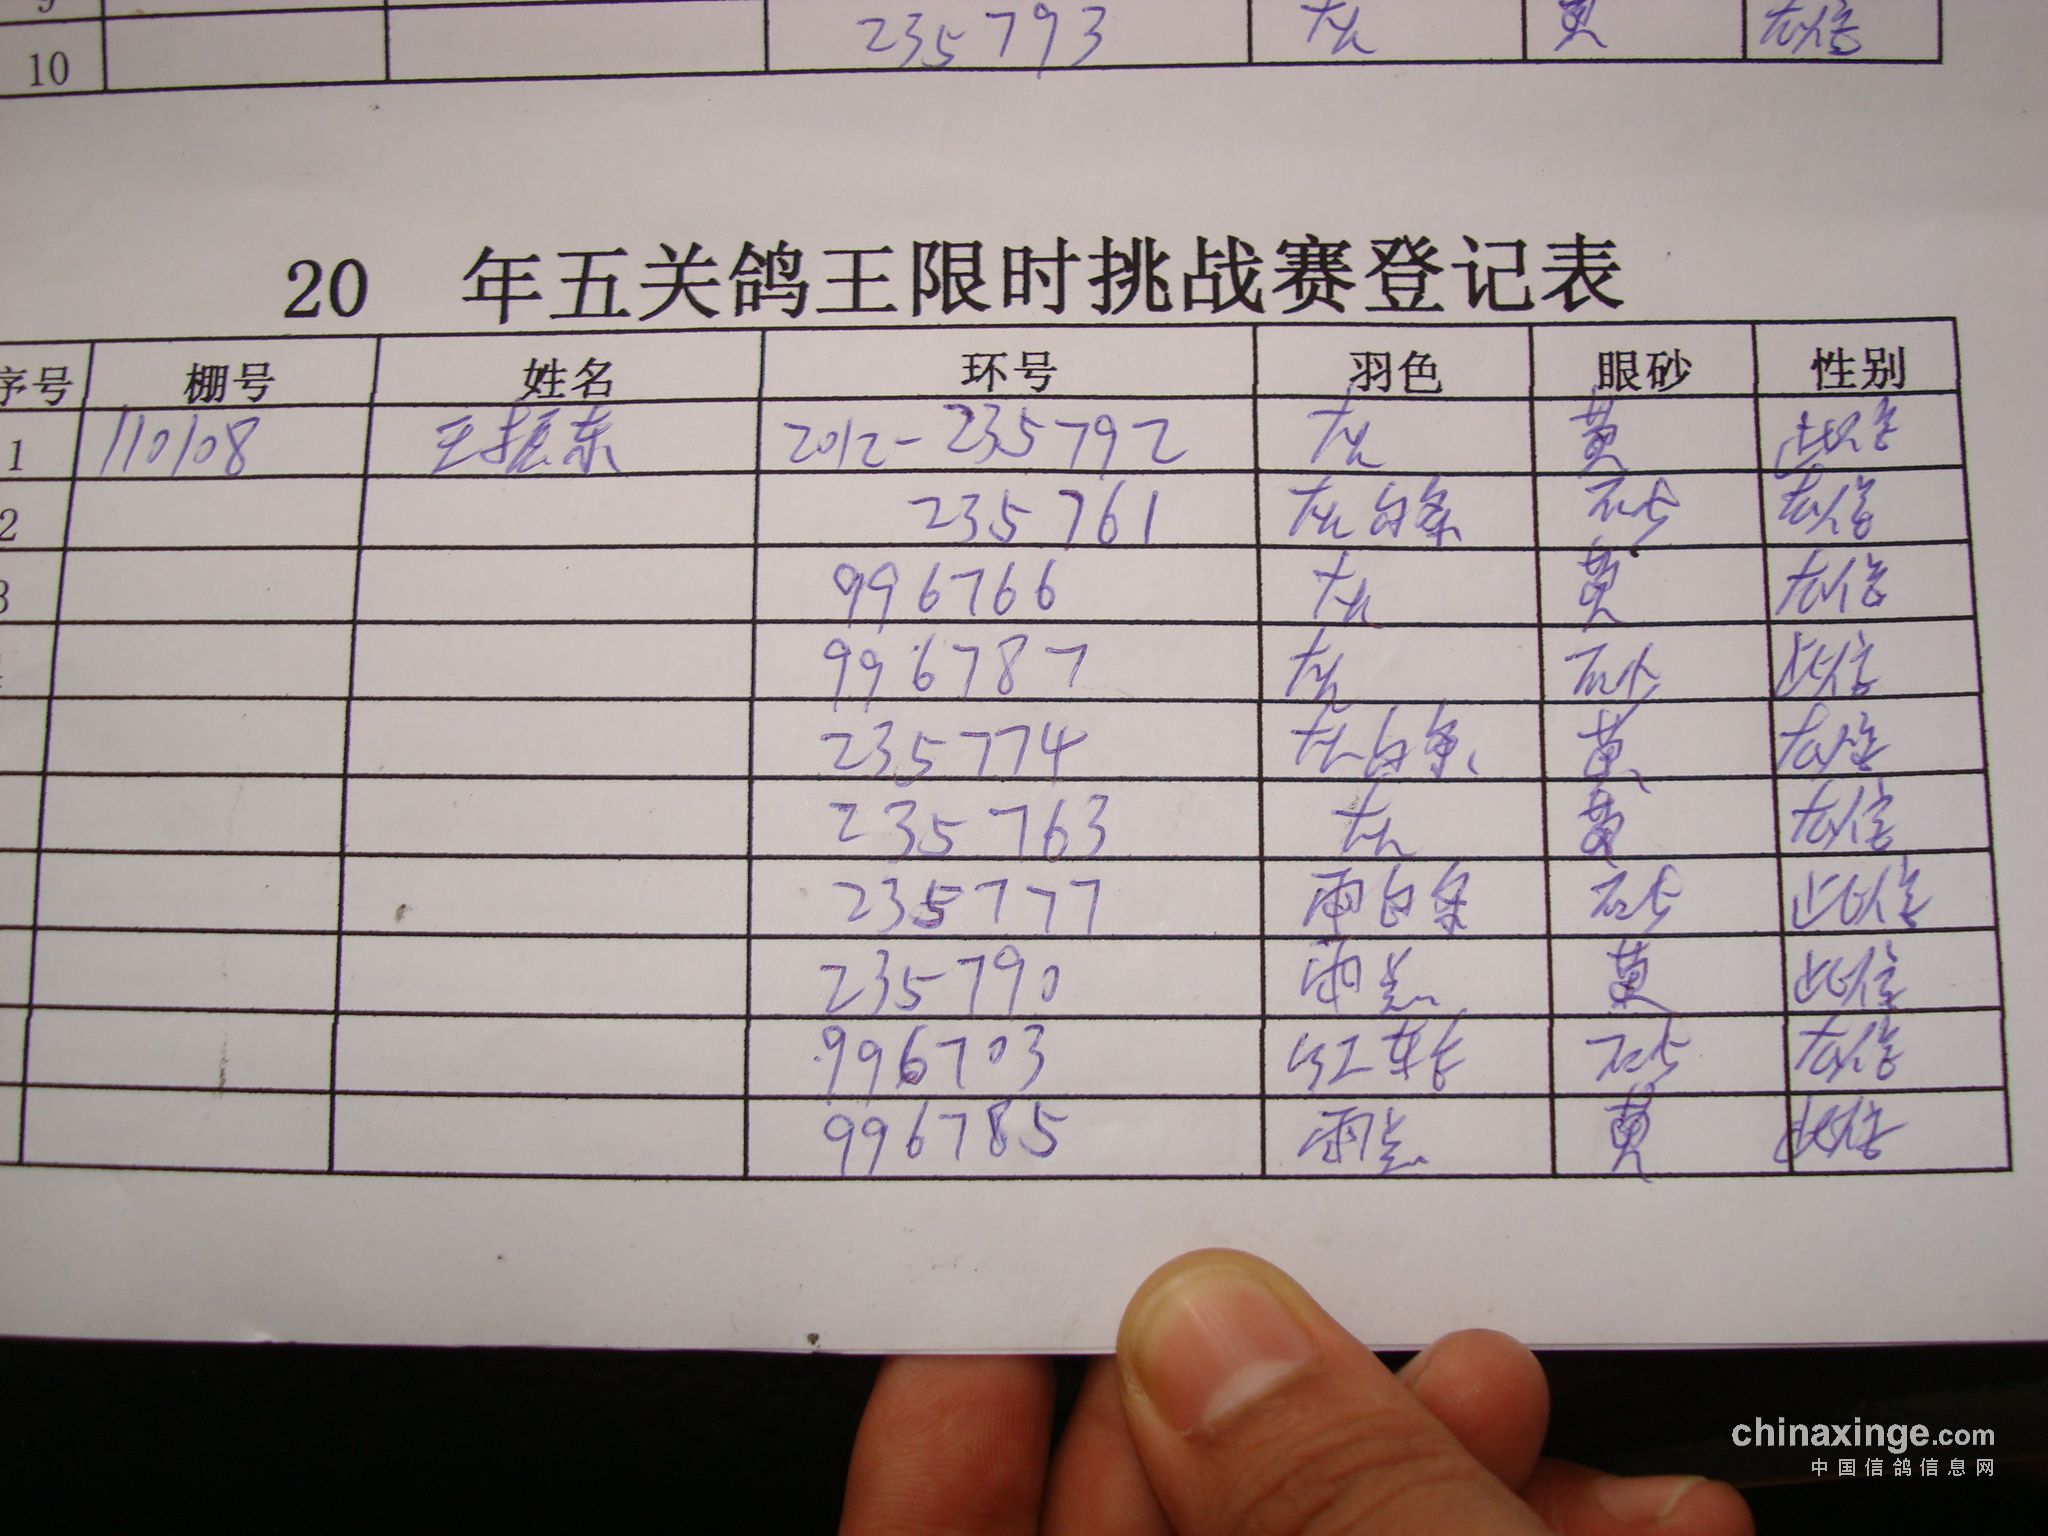 9
10 235793 灰 黄 雄
20 年五关鸽王限时挑战赛登记表
序号 棚号 姓名 环号 羽色 眼砂 性别
1 110108 王振东 2012-235792 灰 黄 雌
2 235761 灰白条 砂 雄
3 996766 灰 黄 雄
996787 灰 砂 雌
235774 灰白条 黄 雄
235763 灰 黄 雄
235777 雨白条 砂 雌
235790 雨点 黄 雌
996703 红轮 砂 雄
996785 雨点 黄 雌
chinaxinge.com
中国信鸽信息网